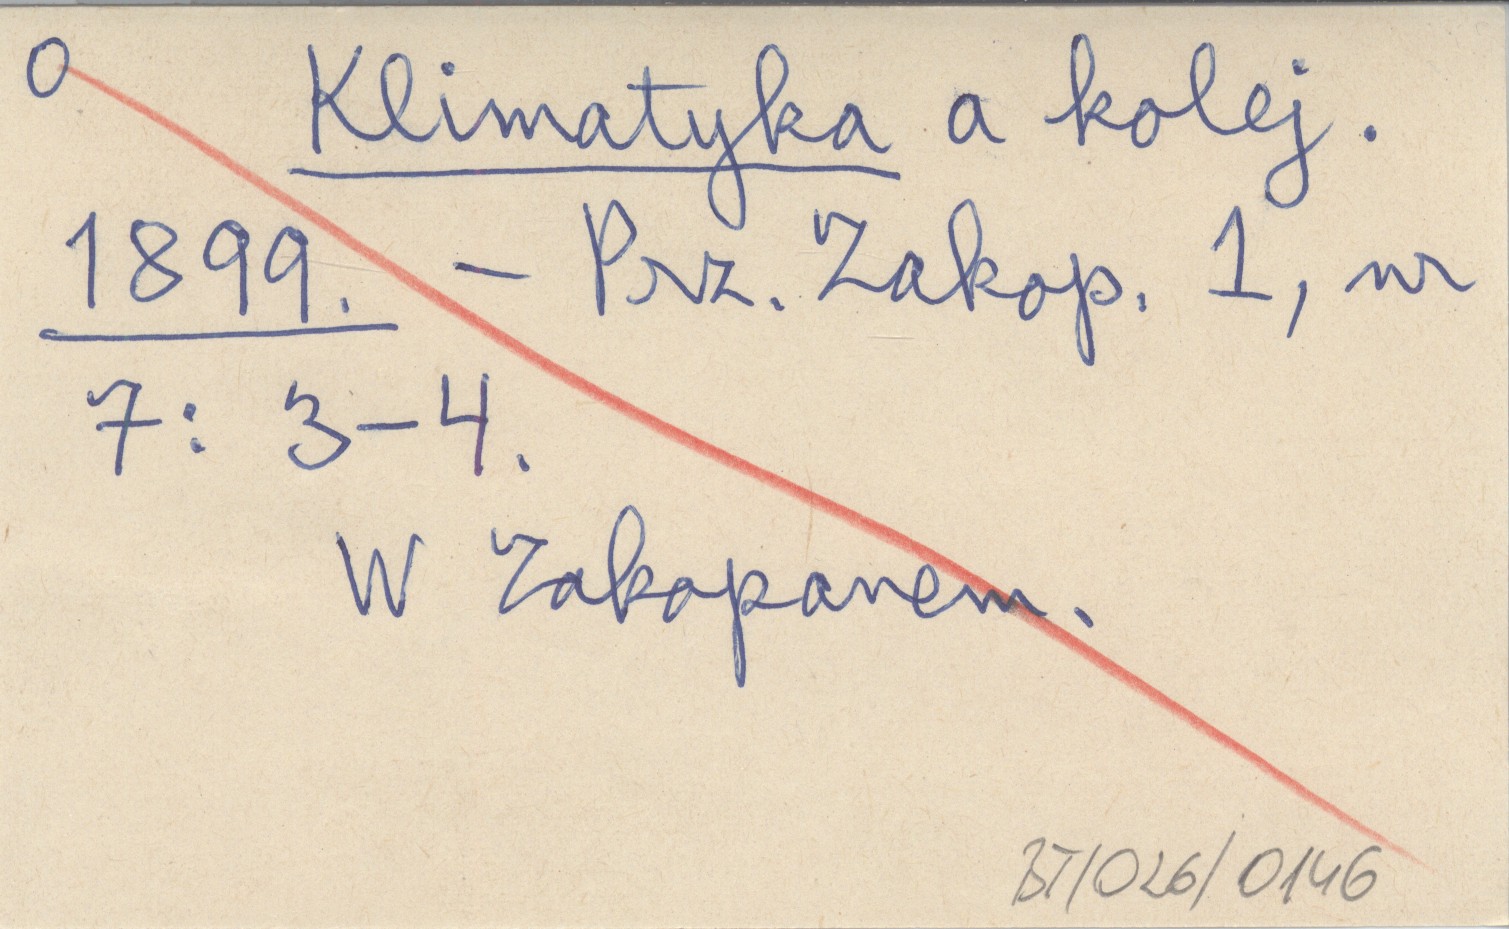 O Klimatyka a kolej.
1899. – Prz. Zakop. 1, nr
7: 3–4.
W Zakopanem.
BT/026/0146